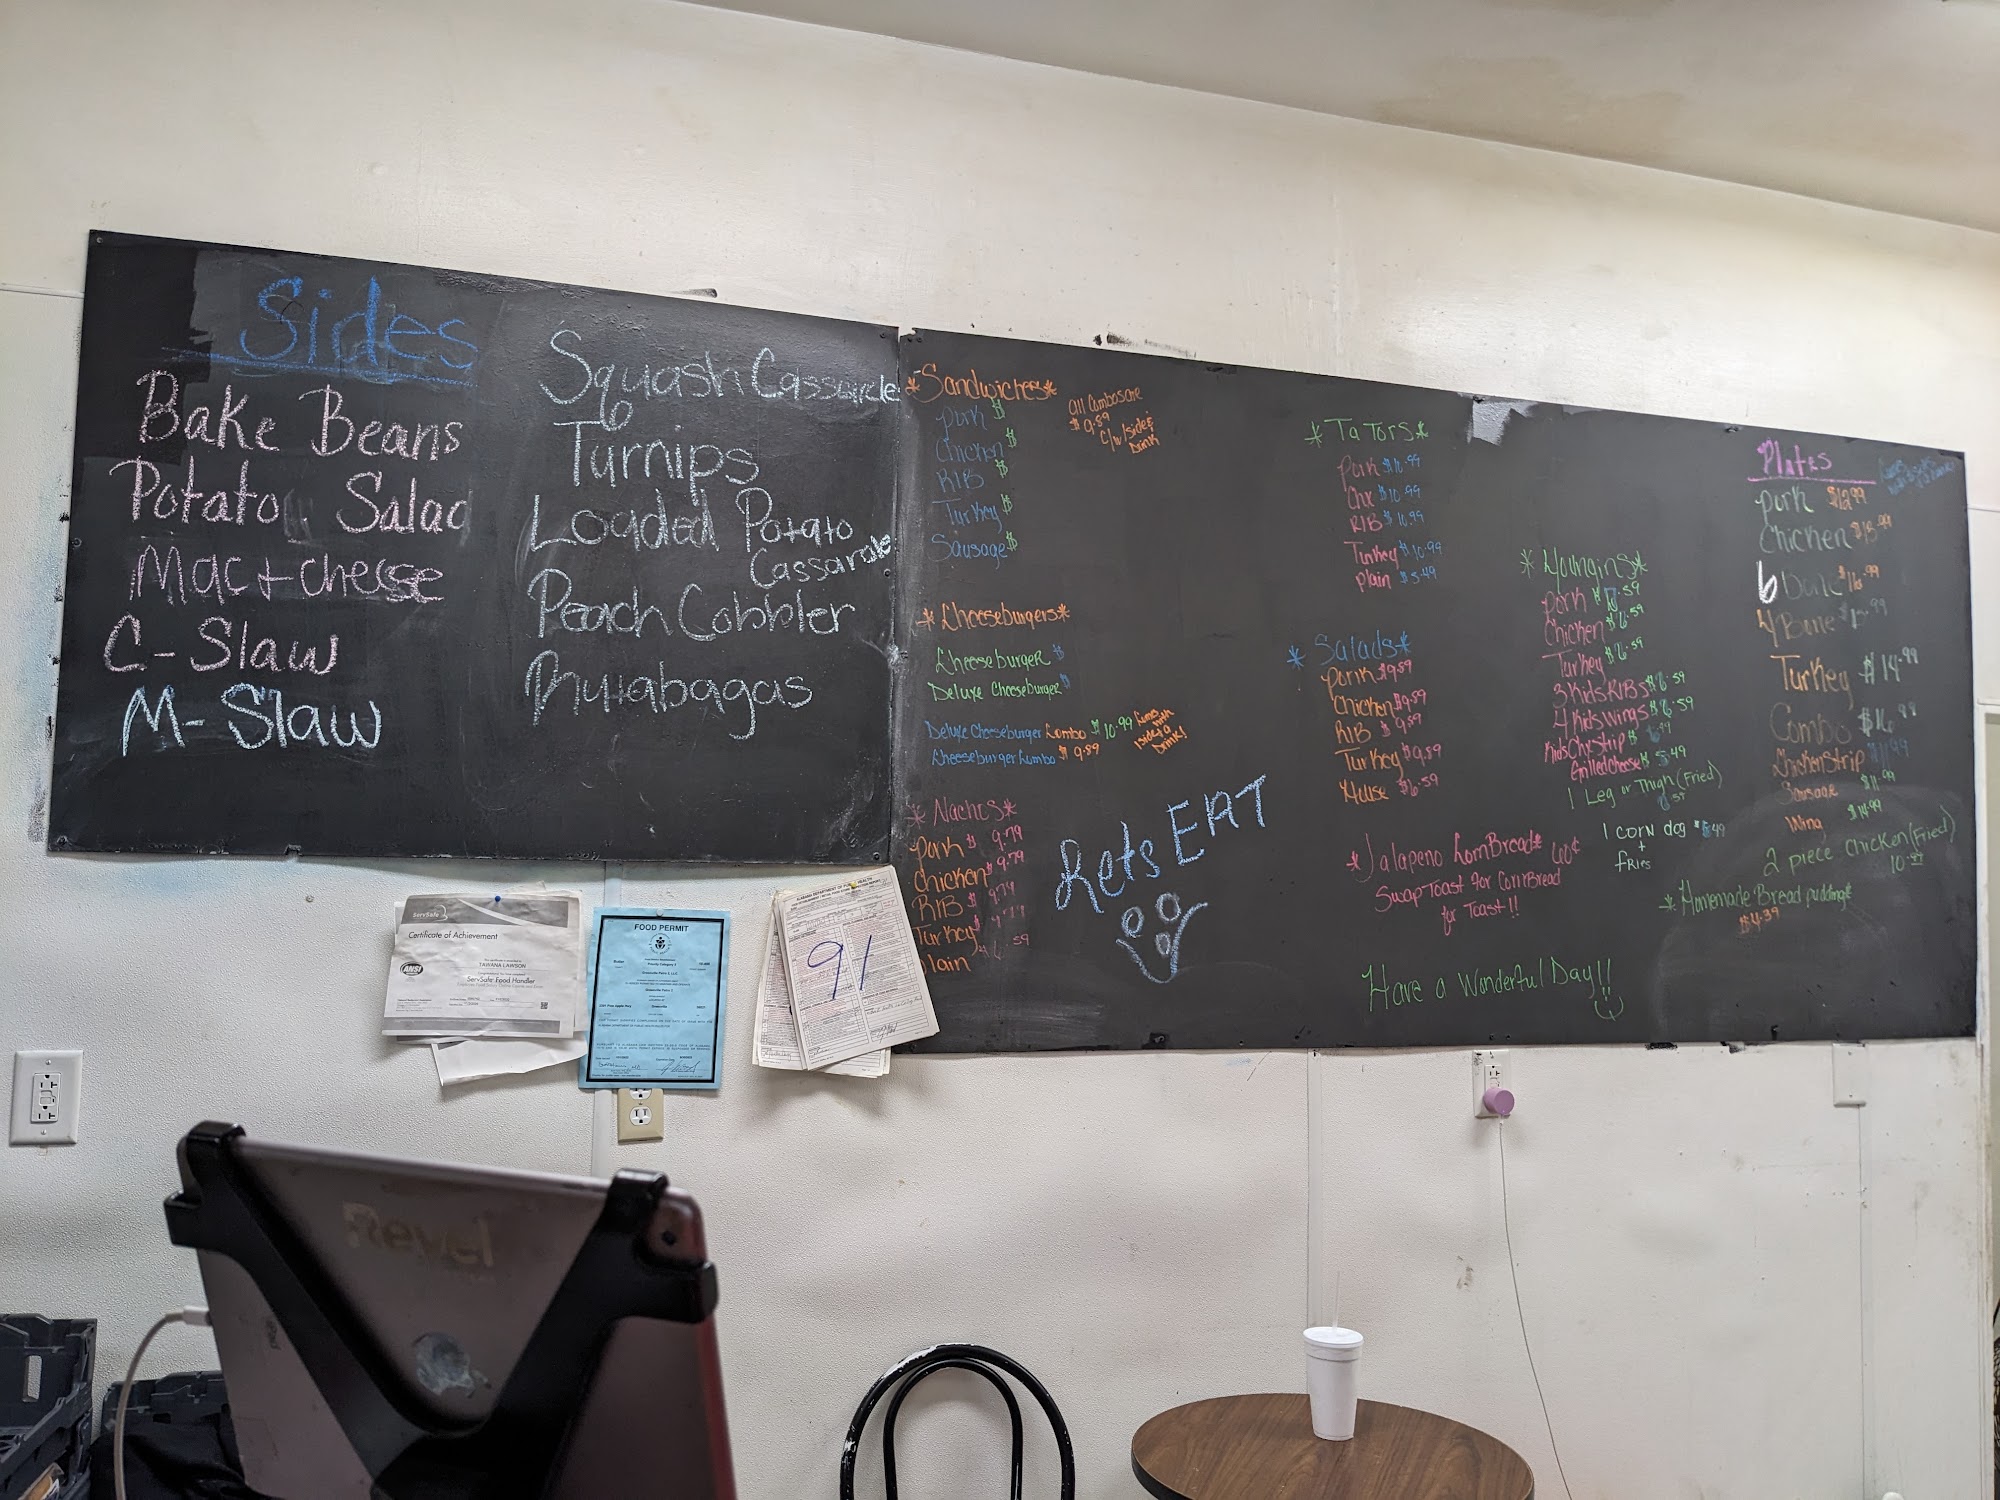 Sides
Bake Beans
Potato Salad
Mac + cheese
C-Slaw
M-Slaw
Squash Casserole
Turnips
Loaded Potato
Casserole
Peach Cobbler
Rutabagas
*Sandwiches*
Pork $
Chicken $
RIB $
Turkey $
Sausage $
All Combos are
$9.89
C/w/side &
Drink
*Cheeseburgers*
Cheeseburger $
Deluxe Cheeseburger $
Deluxe Cheeseburger Combo $10.99
Cheeseburger Combo $9.89
Comes with
1 side & a
Drink!
*Nachos*
Pork $ 9.79
Chicken $ 9.79
RIB $ 9.79
Turkey $
Plain 59
Lets EAT
*TaTors*
Pork $10.99
Chx $10.99
RIB $10.99
Turkey $10.99
Plain $5.49
*Salads*
Pork $9.59
Chicken $9.59
RIB $9.59
Turkey $9.59
House $6.59
*Jalapeno CornBread* 60¢
Swap Toast for CornBread
for Toast!!
Have a Wonderful Day!!
*Youngins*
Pork $ .59
Chicken $6.59
Turkey $6.59
3 Kids RIBS $6.59
4 Kids wings $6.59
Kids Chx Strip $
Grilled cheese $5.49
1 Leg or Thigh (Fried)
1 corn dog
+
fries
Plates
Pork $12.99
Chicken
6 Bone $16.99
4 Bone
Turkey $14.99
Combo $16.99
Chicken Strip $11.99
Sausage $11.99
Wing $14.99
2 piece chicken (Fried)
*Homemade Bread pudding*
$4.39
ServSafe
Certificate of Achievement
TAWANA LAWSON
ANSI
ServSafe Food Handler
FOOD PERMIT
ALABAMA DEPARTMENT OF PUBLIC HEALTH
91
Revel